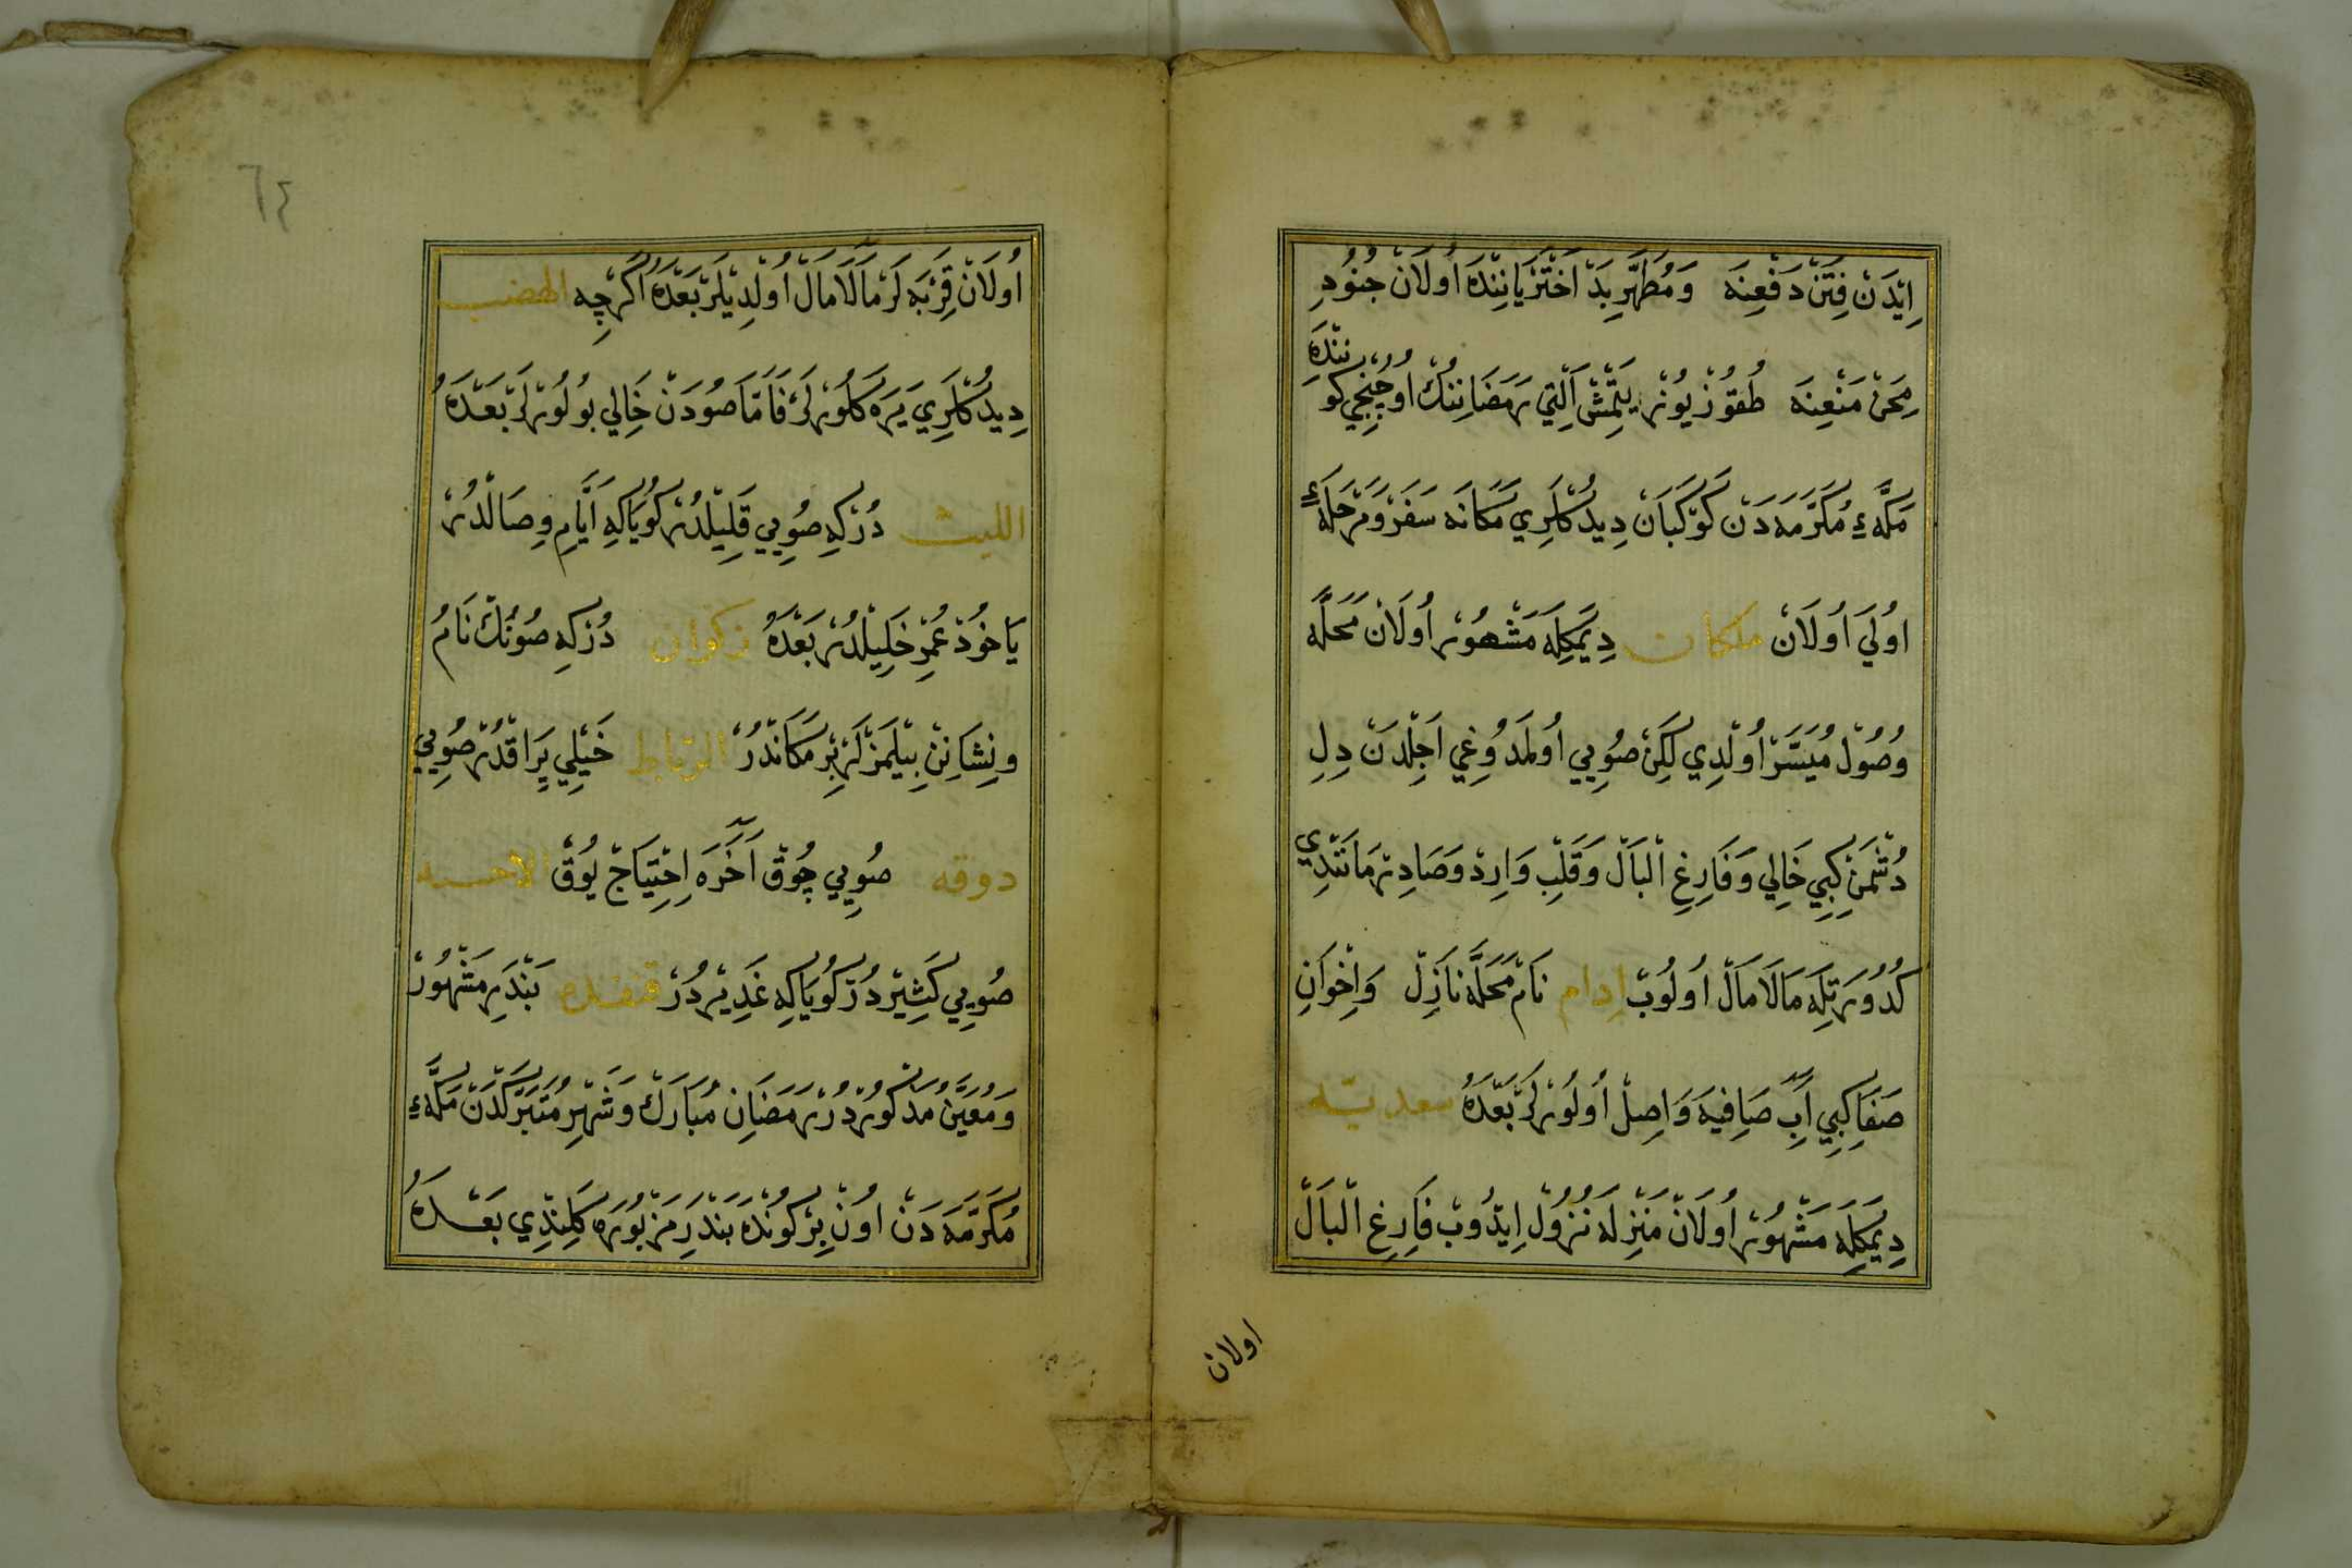 اِيْدَنْ فِتَنْ دَفْعِنَه وَمُطَهَّرِ بَدْ اَخْتَرْ يَانِنْدَه اُولَانْ جُنُودِ
مِحَنْ مَنْعِنَه طُقُوزْ يُوزْ يَتْمِشْ اَلْتِي رَمَضَانِنُكْ اُوچُنْجِي كُونِنْدَه
مَكَّهءِ مُكَرَّمَه دَنْ كَوْكَبَانْ دِيدُكْلَرِي مَكَانَه سَفَرْ وَمَرْحَلَهءِ
اُولَى اُولَانْ ملكان دِيمَكِلَه مَشْهُورْ اُولَانْ مَحَلَّه
وُصُولْ مُيَسَّرْ اُولْدِي لَكِنْ صُويِي اُولْمَدُوغِي اَجِلْدَنْ دِلِ
دُشْمَنْ كِبِي خَالِي وَفَارِغِ الْبَالْ وَقَلْبِ وَارِدْ وَصَادِرْ مَانَنْدِي
كُدُورَتِلَه مَالَامَالْ اُولُوبْ اِدام نَامْ مَحَلَّه نَازِلْ وَاِخْوَانِ
صَفَا كِبِي آبِ صَافِيَه وَاصِلْ اُولُورْلَرْ بَعْدَهُ سعديّه
دِيمَكِلَه مَشْهُورْ اُولَانْ مَنْزِلَه نُزُولْ اِيدُوبْ فَارِغِ الْبَالْ
اولان
٦٤
اُولَانْ قِرْبَه لَرْ مَالَامَالْ اُولْدِيلَرْ بَعْدَهُ اَكَرْچِه الهضب
دِيدُكْلَرِي يَرَه كَلُورْلَرْ فَاَمَّا صُودَنْ خَالِي بُولُورْلَرْ بَعْدَهُ
الليث دُرْكِه صُويِي قَلِيلْدُرْ كُويَاكِه اَيَّامِ وِصَالْدُرْ
يَاخُودْ عُمْرِ خَلِيلْدُرْ بَعْدَهُ زكوان دُرْكِه صُونُكْ نَامُ
ونِشَانِنْ بِيلْمَزْلَرْ بِرْ مَكَانْدُرْ الرباط خَيْلِي يِرَاقْدُرْ صُويِي
دوقه صُويِي چُوقْ آخَرَه اِحْتِيَاجْ يُوقْ الاحسبه
صُويِي كَثِيرْدُرْ كُويَاكِه غَدِيرْدُرْ قنفده بَنْدَرِ مَشْهُورْ
وَمُعَيَّنْ مَذْكُورْدُرْ رَمَضَانِ مُبَارَكْ وَشَهْرِ مُتَبَرَّكْدَنْ مَكَّهءِ
مُكَرَّمَه دَنْ اُونْ بِرْ كُونْدَه بَنْدَرِ مَزْبُورَه كَلِنْدِي بَعْدَهُ